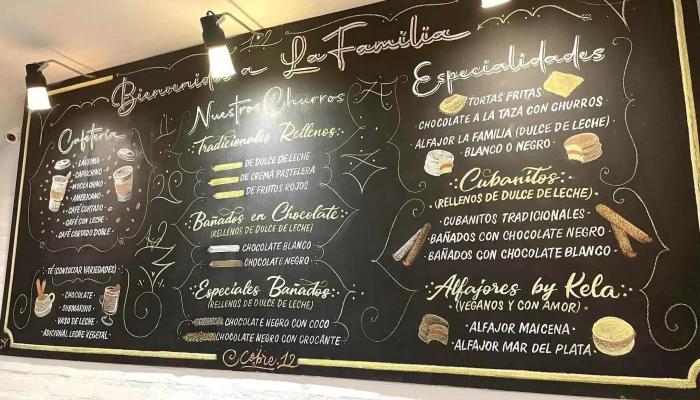 Bienvenidos a La Familia
Cafetería
LÁGRIMA
CAPUCHINO
MOCCACHINO
AMERICANO
CAFÉ CORTADO
CAFÉ CON LECHE
CAFÉ CORTADO DOBLE
TÉ (CONSULTAR VARIEDADES)
CHOCOLATE
SUBMARINO
VASO DE LECHE
ADICIONAL LECHE VEGETAL
Nuestros Churros
Tradicionales Rellenos:
DE DULCE DE LECHE
DE CREMA PASTELERA
DE FRUTOS ROJOS
Bañados en Chocolate
(RELLENOS DE DULCE DE LECHE)
CHOCOLATE BLANCO
CHOCOLATE NEGRO
Especiales Bañados:
(RELLENOS DE DULCE DE LECHE)
CHOCOLATE NEGRO CON COCO
CHOCOLATE NEGRO CON CROCANTE
C. Cobre, 12
Especialidades
TORTAS FRITAS
CHOCOLATE A LA TAZA CON CHURROS
ALFAJOR LA FAMILIA (DULCE DE LECHE)
BLANCO O NEGRO
Cubanitos
(RELLENOS DE DULCE DE LECHE)
CUBANITOS TRADICIONALES
BAÑADOS CON CHOCOLATE NEGRO
BAÑADOS CON CHOCOLATE BLANCO
Alfajores by Kela
(VEGANOS Y CON AMOR)
ALFAJOR MAICENA
ALFAJOR MAR DEL PLATA